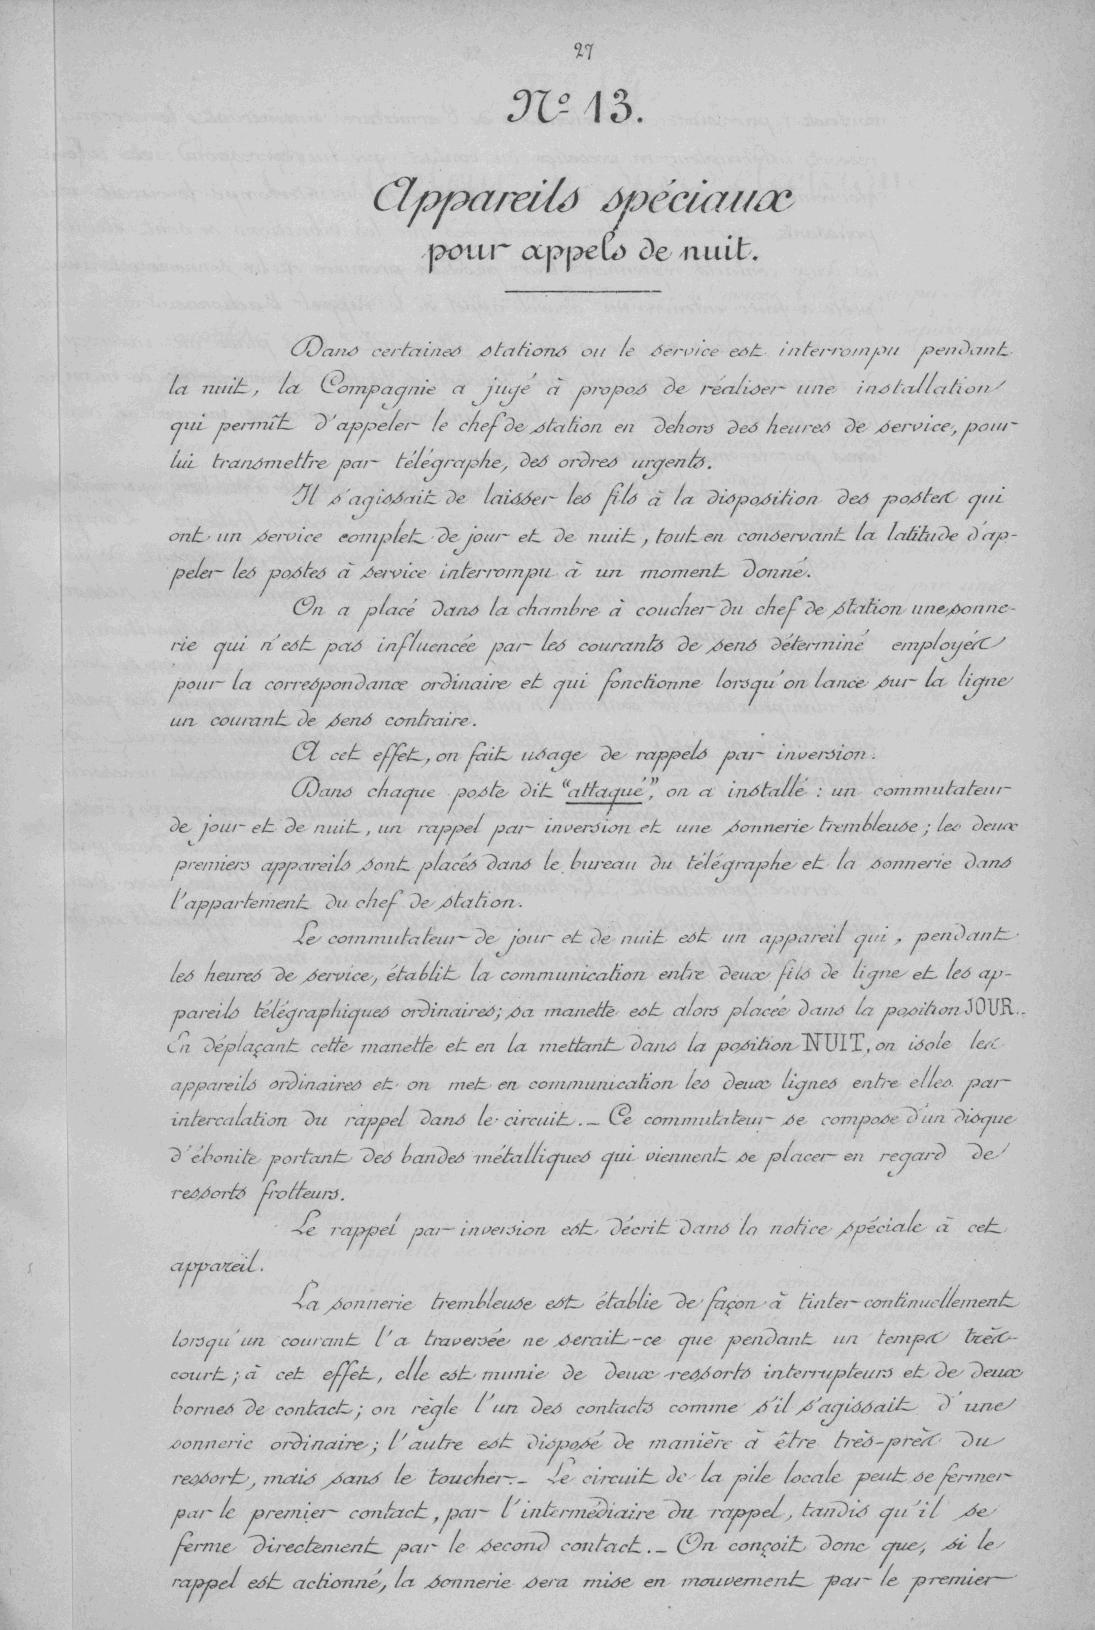 27
Nº 13.
Appareils spéciaux
pour appels de nuit.
Dans certaines stations ou le service est interrompu pendant
la nuit, la Compagnie a jugé à propos de réaliser une installation
qui permît d'appeler le chef de station en dehors des heures de service, pour
lui transmettre par télégraphe, des ordres urgents.
Il s'agissait de laisser les fils à la disposition des postes qui
ont un service complet de jour et de nuit, tout en conservant la latitude d'ap-
peler les postes à service interrompu à un moment donné.
On a placé dans la chambre à coucher du chef de station une sonne-
rie qui n'est pas influencée par les courants de sens déterminé employés
pour la correspondance ordinaire et qui fonctionne lorsqu'on lance sur la ligne
un courant de sens contraire.
A cet effet, on fait usage de rappels par inversion.
Dans chaque poste dit "attaqué", on a installé : un commutateur
de jour et de nuit, un rappel par inversion et une sonnerie trembleuse ; les deux
premiers appareils sont placés dans le bureau du télégraphe et la sonnerie dans
l'appartement du chef de station.
Le commutateur de jour et de nuit est un appareil qui, pendant
les heures de service, établit la communication entre deux fils de ligne et les ap-
pareils télégraphiques ordinaires ; sa manette est alors placée dans la position JOUR.
En déplaçant cette manette et en la mettant dans la position NUIT, on isole les
appareils ordinaires et on met en communication les deux lignes entre elles par
intercalation du rappel dans le circuit. _ Ce commutateur se compose d'un disque
d'ébonite portant des bandes métalliques qui viennent se placer en regard de
ressorts frotteurs.
Le rappel par inversion est décrit dans la notice spéciale à cet
appareil.
La sonnerie trembleuse est établie de façon à tinter continuellement
lorsqu'un courant l'a traversée ne serait-ce que pendant un temps très-
court ; à cet effet, elle est munie de deux ressorts interrupteurs et de deux
bornes de contact ; on règle l'un des contacts comme s'il s'agissait d'une
sonnerie ordinaire ; l'autre est disposé de manière à être très-près du
ressort, mais sans le toucher. _ Le circuit de la pile locale peut se fermer
par le premier contact, par l'intermédiaire du rappel, tandis qu'il se
ferme directement par le second contact. _ On conçoit donc que, si le
rappel est actionné, la sonnerie sera mise en mouvement par le premier